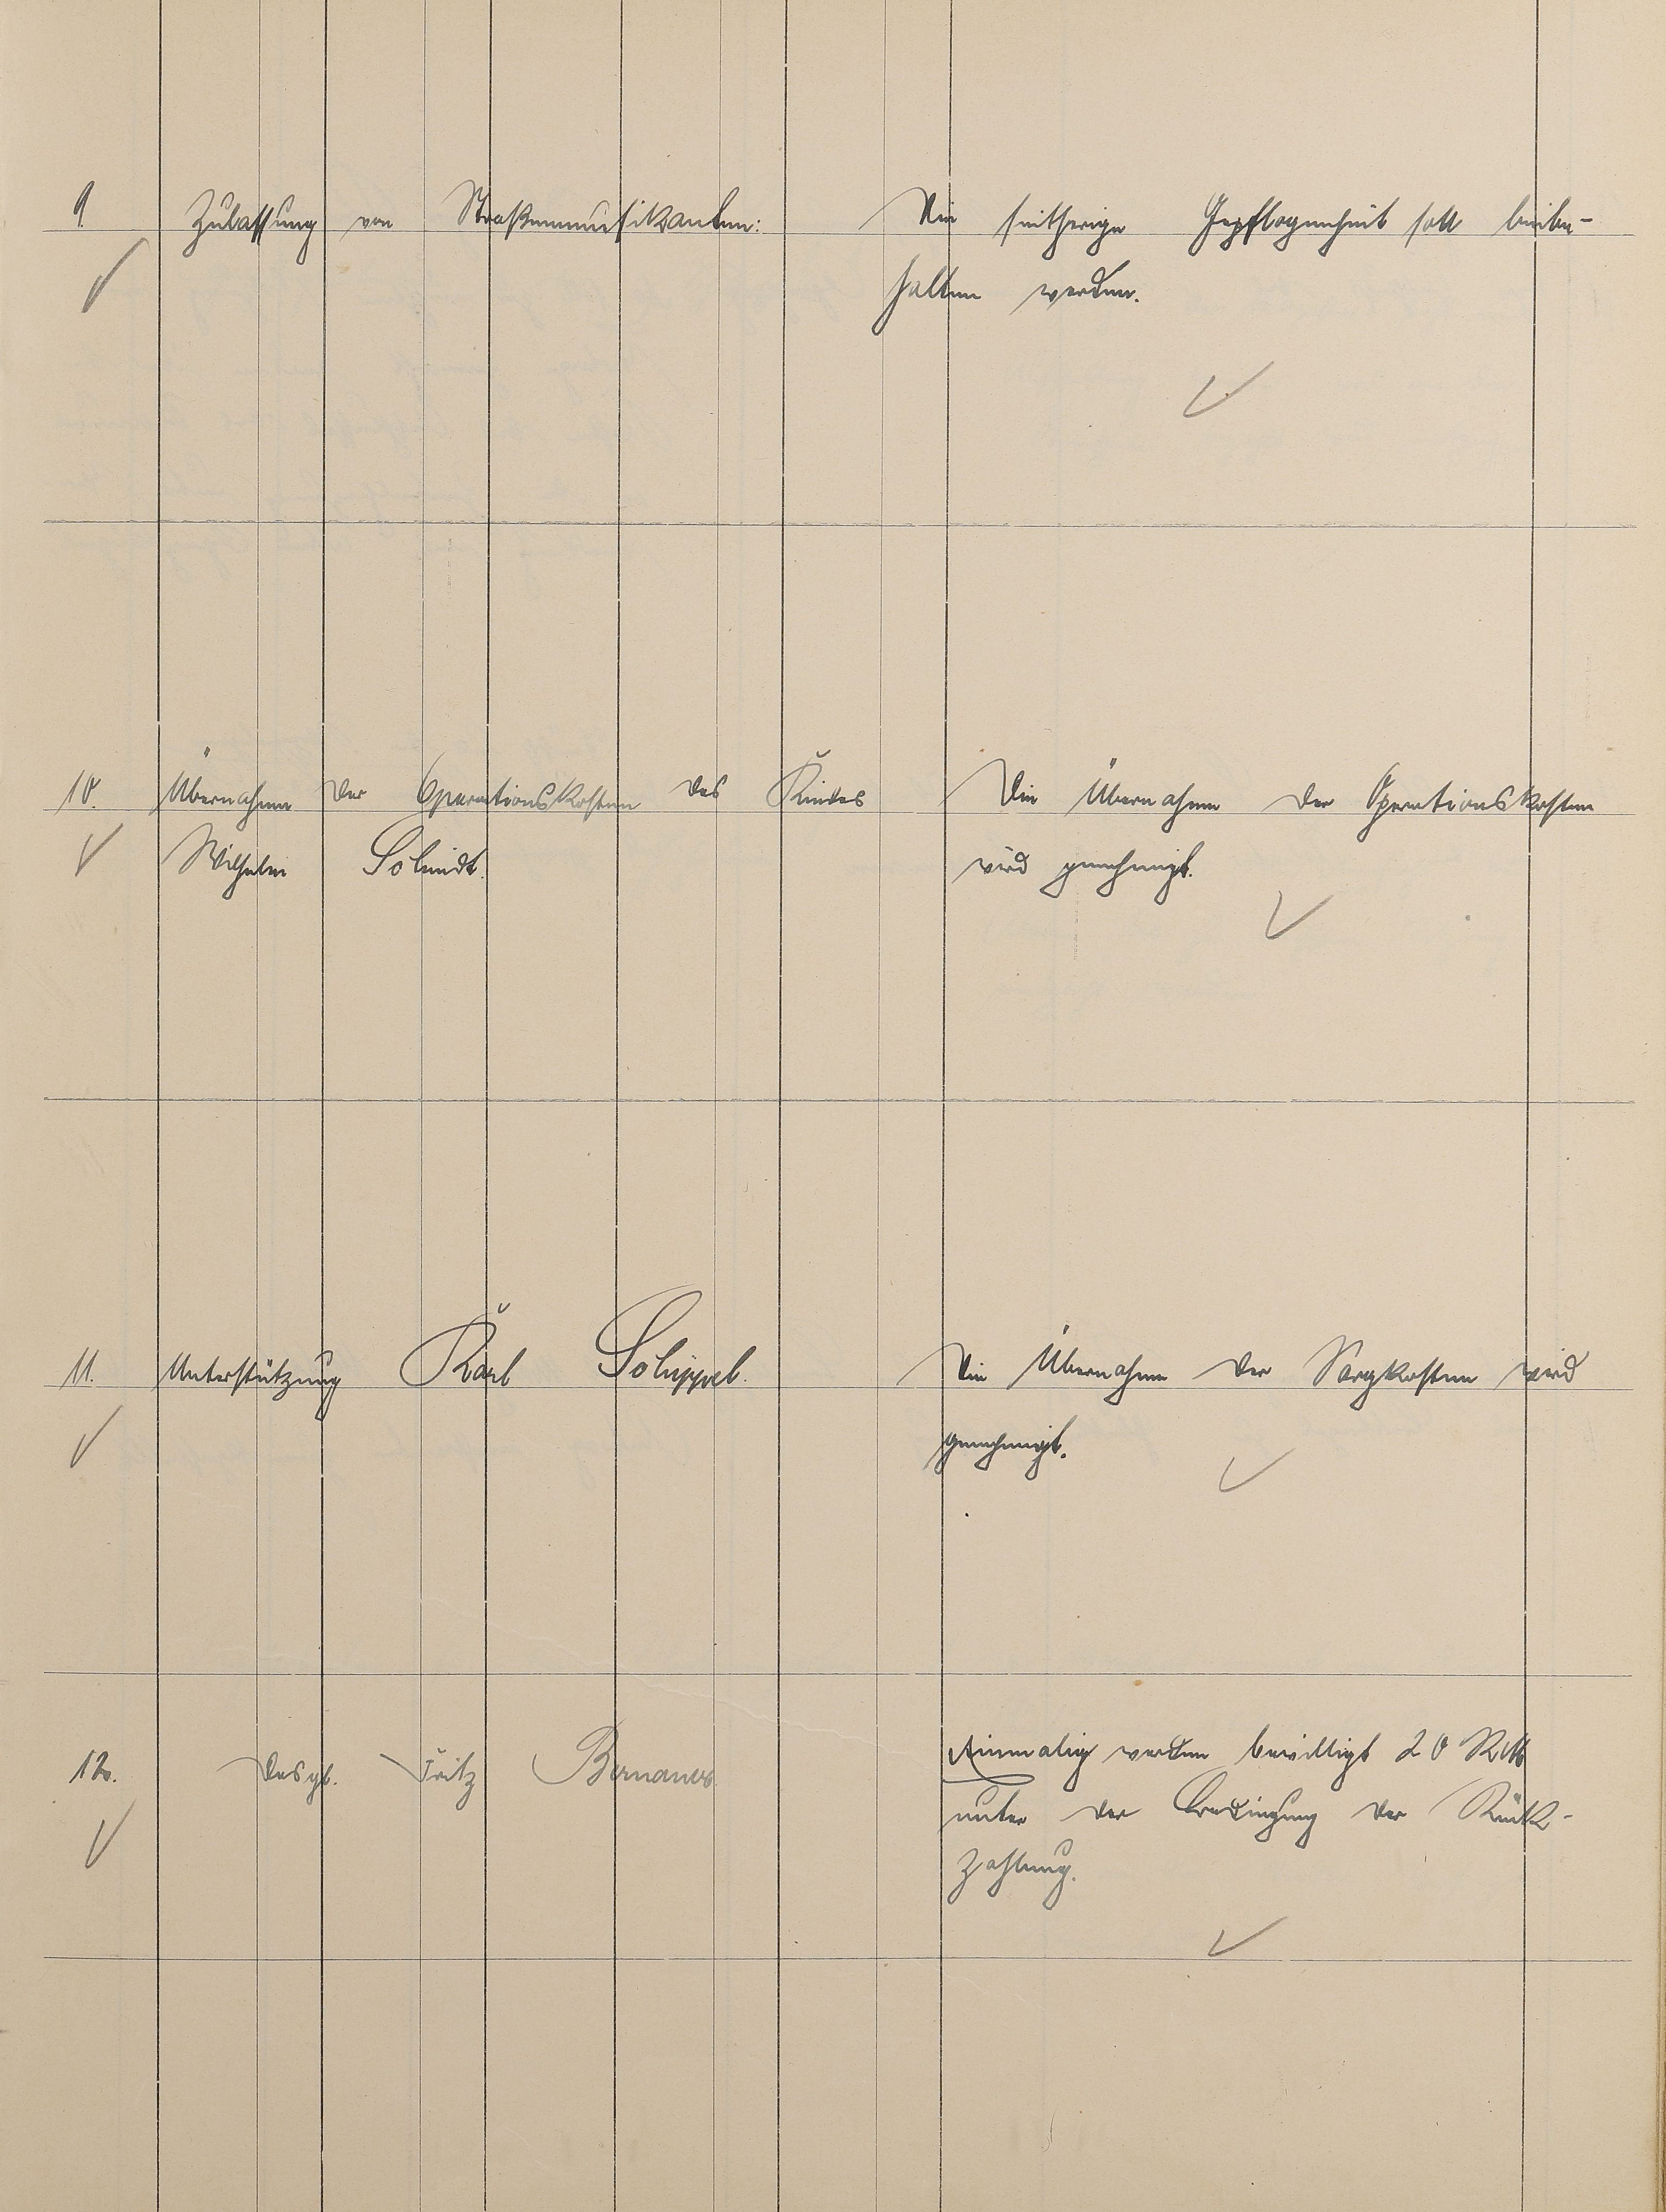 9. Zulassung von Straßenmusikanten: Die seitherige Gepflogenheit soll beibe-
halten werden.
10. Übernahme der Operationskosten des Kindes Die Übernahme der Operationskosten
Wilhelm Schmidt. wird genehmigt.
11. Unterstützung Karl Schippel. Die Übernahme der Sargkosten wird
genehmigt.
12. Desgl. Fritz Einmalig werden bewilligt 20 RM
unter der Bedingung der Rück-
zahlung.